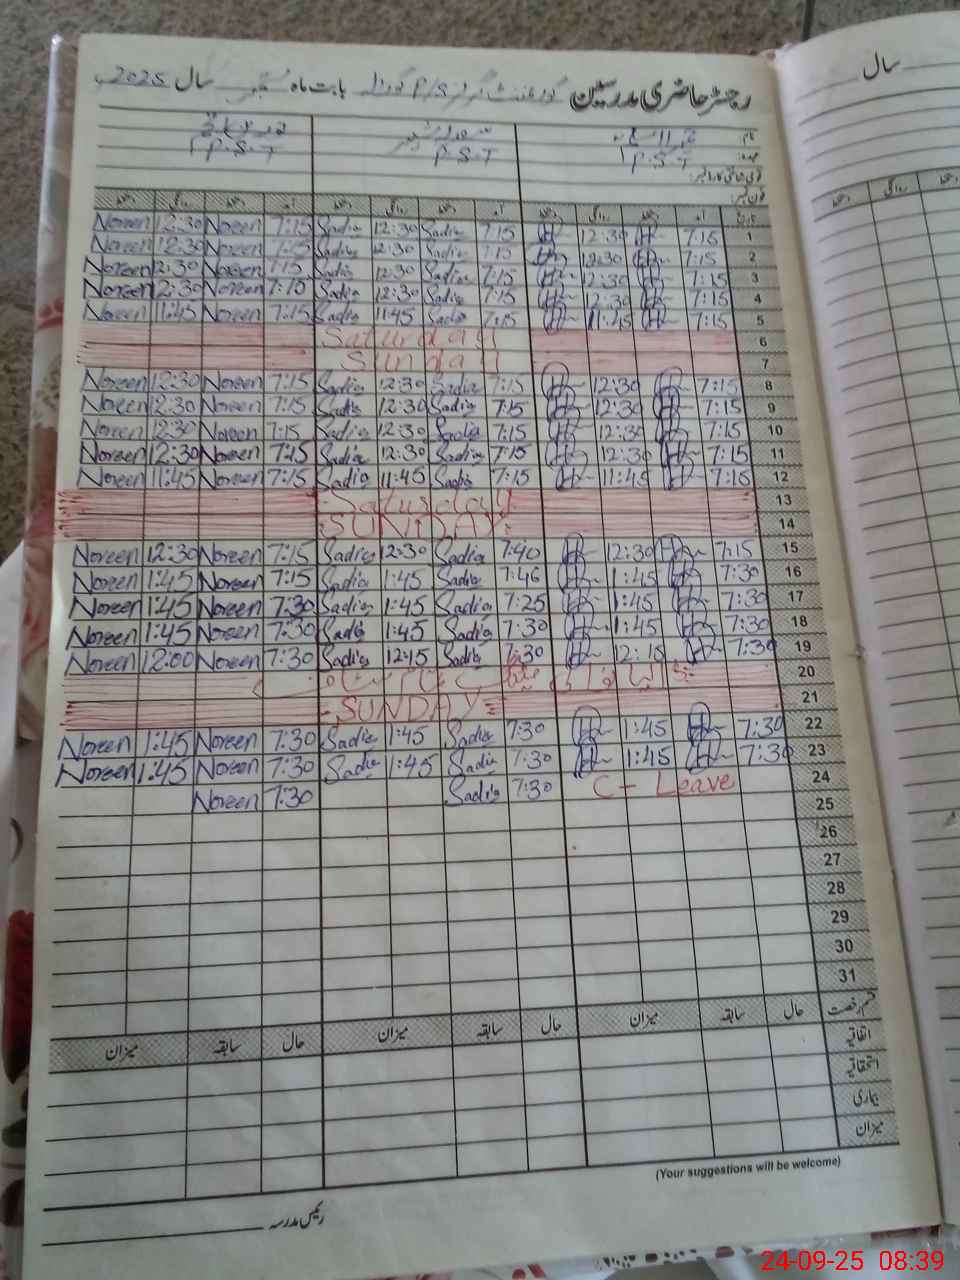 رجسٹر حاضری مدرسین گورنمنٹ گرلز P/S بابت ماہ ستمبر سال 2025
سال
نام
P.S.T P.S.T P.S.T
عہدہ
قومی شناختی کارڈ نمبر
فون نمبر
تاریخ آمد دستخط روانگی دستخط آمد دستخط روانگی دستخط آمد دستخط روانگی دستخط
روانگی دستخط
Noreen 12:30 Noreen 7:15 Sadia 12:30 Sadia 7:15 12:30 7:15 1
Noreen 12:30 Noreen 7:15 Sadia 12:30 Sadia 7:15 12:30 7:15 2
Noreen 12:30 Noreen 7:15 Sadia 12:30 Sadia 7:15 12:30 7:15 3
Noreen 12:30 Noreen 7:15 Sadia 12:30 Sadia 7:15 12:30 7:15 4
Noreen 11:45 Noreen 7:15 Sadia 11:45 Sadia 7:15 11:45 7:15 5
Saturday 6
Sunday 7
Noreen 12:30 Noreen 7:15 Sadia 12:30 Sadia 7:15 12:30 7:15 8
Noreen 12:30 Noreen 7:15 Sadia 12:30 Sadia 7:15 12:30 7:15 9
Noreen 12:30 Noreen 7:15 Sadia 12:30 Sadia 7:15 12:30 7:15 10
Noreen 12:30 Noreen 7:15 Sadia 12:30 Sadia 7:15 12:30 7:15 11
Noreen 11:45 Noreen 7:15 Sadia 11:45 Sadia 7:15 11:45 7:15 12
Saturday 13
SUNDAY 14
Noreen 12:30 Noreen 7:15 Sadia 12:30 Sadia 7:40 12:30 7:15 15
Noreen 1:45 Noreen 7:15 Sadia 1:45 Sadia 7:46 1:45 7:30 16
Noreen 1:45 Noreen 7:30 Sadia 1:45 Sadia 7:25 1:45 7:30 17
Noreen 1:45 Noreen 7:30 Sadia 1:45 Sadia 7:30 1:45 7:30 18
Noreen 12:00 Noreen 7:30 Sadia 12:15 Sadia 7:30 12:15 7:30 19
20
SUNDAY 21
Noreen 1:45 Noreen 7:30 Sadia 1:45 Sadia 7:30 1:45 7:30 22
Noreen 1:45 Noreen 7:30 Sadia 1:45 Sadia 7:30 1:45 7:30 23
Noreen 7:30 Sadia 7:30 C- Leave 24
25
26
27
28
29
30
31
قسم رخصت حال سابقہ میزان حال سابقہ میزان حال سابقہ میزان
اتفاقیہ
استحقاقیہ
بیماری
میزان
(Your suggestions will be welcome)
رئیس مدرسہ
24-09-25 08:39